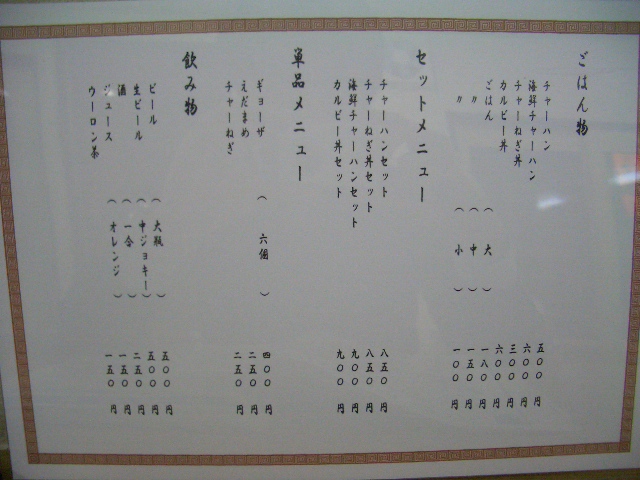 ごはん物
チャーハン 五〇〇円
海鮮チャーハン 六〇〇円
チャーねぎ丼 三〇〇円
カルビー丼 六〇〇円
ごはん（大）一八〇円
〃（中）一五〇円
〃（小）一〇〇円
セットメニュー
チャーハンセット 八五〇円
チャーねぎ丼セット 八五〇円
海鮮チャーハンセット 九〇〇円
カルビー丼セット 九〇〇円
単品メニュー
ギョーザ（六個）四〇〇円
えだまめ 二五〇円
チャーねぎ 二五〇円
飲み物
ビール（大瓶）五〇〇円
生ビール（中ジョキー）五〇〇円
酒（一合）二五〇円
ジュース（オレンジ）一五〇円
ウーロン茶 一五〇円